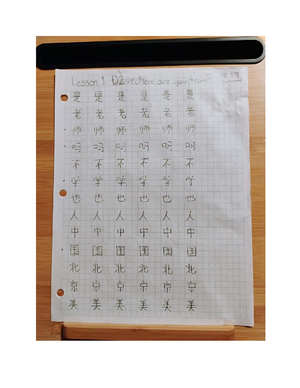 Lesson 1 D2 Where are you from
是 是 是 是 是 是
老 老 老 老 老 老
师 师 师 师 师 师
吗 吗 吗 吗 吗 吗
不 不 不 不 不 不
学 学 学 学 学 学
也 也 也 也 也 也
人 人 人 人 人 人
中 中 中 中 中 中
国 国 国 国 国 国
北 北 北 北 北 北
京 京 京 京 京 京
美 美 美 美 美 美